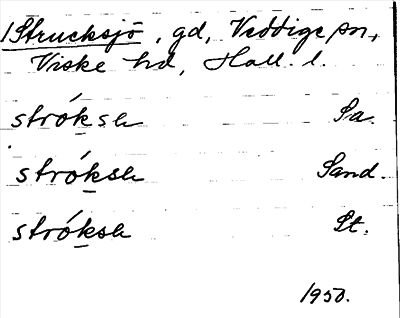 1 Strucksjö, gd, Veddige sn,
Viske hd, Hall. l.
stróksh Sa.
stróksh Sand.
stróksh St.
1950.